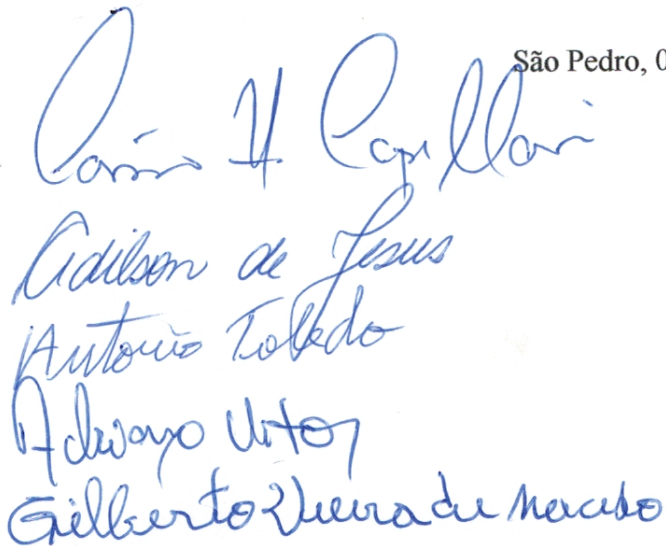 São Pedro, 0
Cássio H. Capellari
Adilson de Jesus
Antonio Toledo
Adriano Vitor
Gilberto Vieira de Macedo